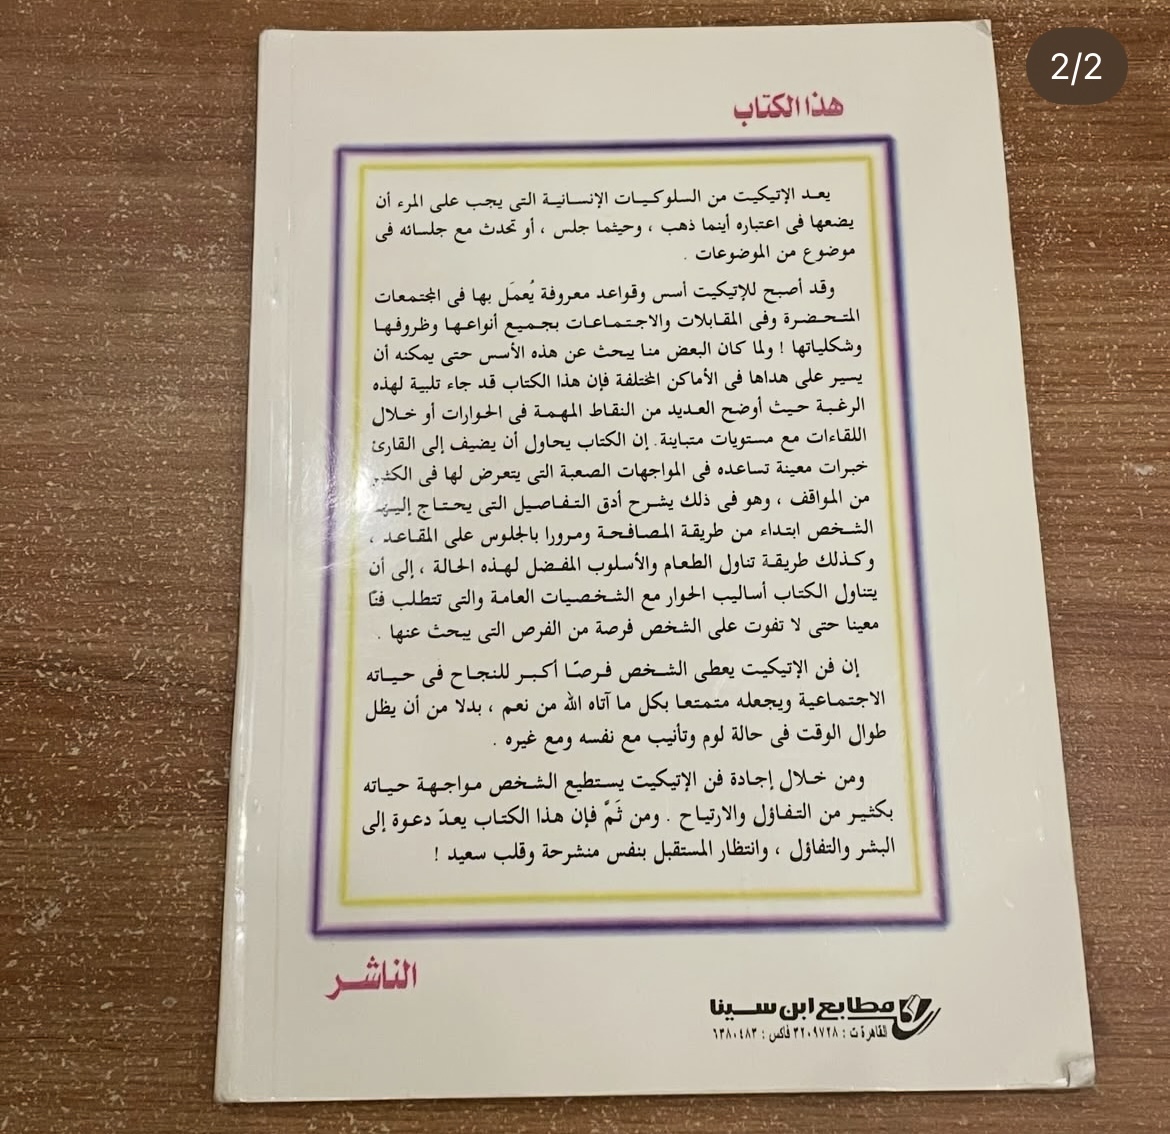 2/2
هذا الكتاب
يعد الإتيكيت من السلوكيات الإنسانية التى يجب على المرء أن
يضعها فى اعتباره أينما ذهب ، وحيثما جلس ، أو تحدث مع جلسائه فى
موضوع من الموضوعات .
وقد أصبح للإتيكيت أسس وقواعد معروفة يُعمَل بها فى المجتمعات
المتحضرة وفى المقابلات والاجتماعات بجميع أنواعها وظروفها
وشكلياتها ! ولما كان البعض منا يبحث عن هذه الأسس حتى يمكنه أن
يسير على هداها فى الأماكن المختلفة فإن هذا الكتاب قد جاء تلبية لهذه
الرغبة حيث أوضح العديد من النقاط المهمة فى الحوارات أو خلال
اللقاءات مع مستويات متباينة. إن الكتاب يحاول أن يضيف إلى القارئ
خبرات معينة تساعده فى المواجهات الصعبة التى يتعرض لها فى الكثير
من المواقف ، وهو فى ذلك يشرح أدق التفاصيل التى يحتاج إليها
الشخص ابتداء من طريقة المصافحة ومرورا بالجلوس على المقاعد ،
وكذلك طريقة تناول الطعام والأسلوب المفضل لهذه الحالة ، إلى أن
يتناول الكتاب أساليب الحوار مع الشخصيات العامة والتى تتطلب فنًا
معينا حتى لا تفوت على الشخص فرصة من الفرص التى يبحث عنها .
إن فن الإتيكيت يعطى الشخص فرصًا أكبر للنجاح فى حياته
الاجتماعية ويجعله متمتعا بكل ما آتاه الله من نعم ، بدلا من أن يظل
طوال الوقت فى حالة لوم وتأنيب مع نفسه ومع غيره .
ومن خلال إجادة فن الإتيكيت يستطيع الشخص مواجهة حياته
بكثير من التفاؤل والارتياح . ومن ثَمَّ فإن هذا الكتاب يعدّ دعوة إلى
البشر والتفاؤل ، وانتظار المستقبل بنفس منشرحة وقلب سعيد !
الناشر
مطابع ابن سينا
القاهرة ت : ٣٢٠٩٧٢٨ فاكس : ٦٣٨٠٤٨٣